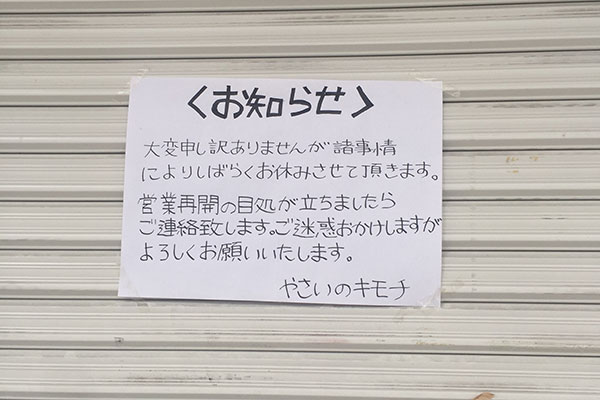 <お知らせ>
大変申し訳ありませんが諸事情
によりしばらくお休みさせて頂きます。
営業再開の目処が立ちましたら
ご連絡致します。ご迷惑おかけしますが
よろしくお願いいたします。
やさいのキモチ